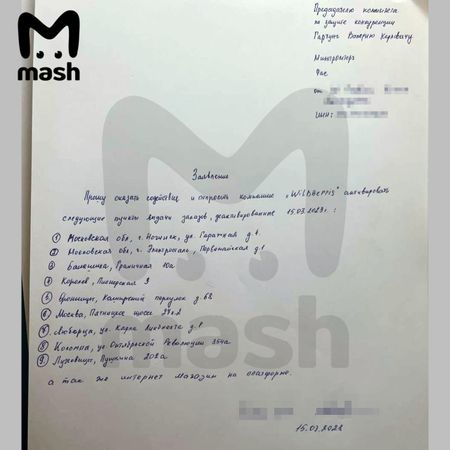 mash
Председателю комитета
по защите конкуренции
Гартунг Валерию Карловичу
Минпромторг
Фас
от
ИНН:
mash
Заявление
Прошу оказать содействие и попросить компанию „Wildberris" активировать
следующие пункты выдачи заказов, деактивированные 15.03.2023г:
① Московская обл, г. Ногинск, ул. Гаражная д.1
② Московская обл, г. Электросталь, Первомайская д.1
③ Балашиха, Граничная 10а
④ Королев, Пионерская 9
⑤ Бронницы, Каширский переулок д. 68
⑥ Москва, Пятницкое шоссе
⑦ Люберцы, ул. Карла Либкнехта д.1
⑧ Коломна, ул. Октябрьской Революции 354а
⑨ Луховицы, Пушкина 202а
а так же интернет магазин на платформе.